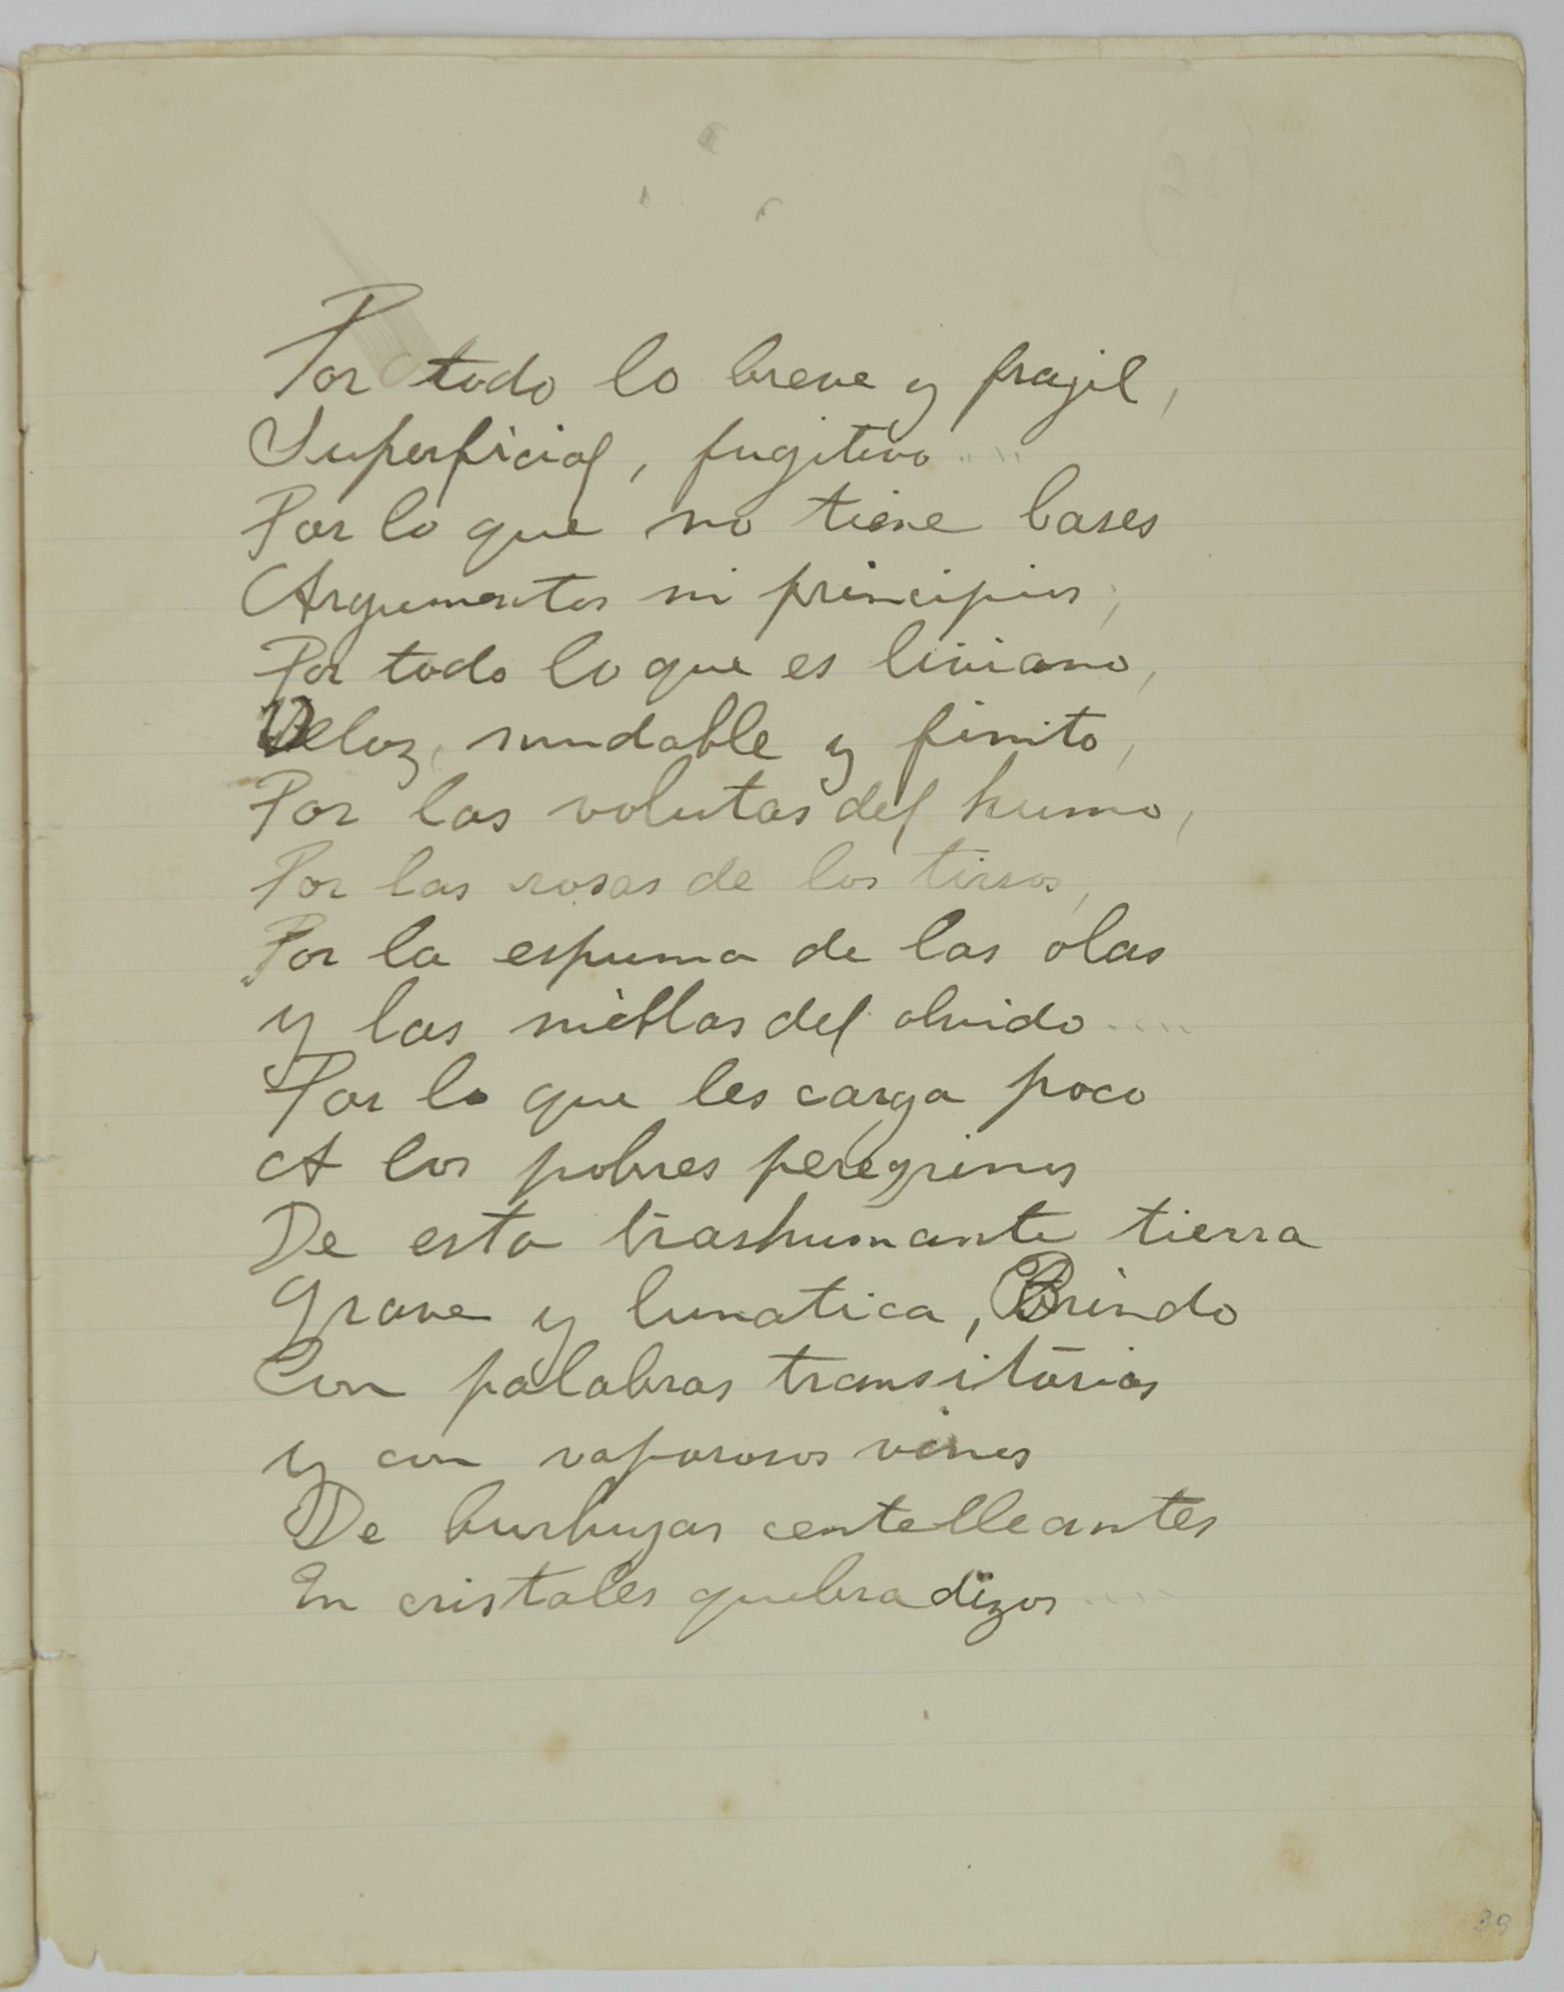 Por todo lo breve y fragil,
Superficial, fugitivo....
Por lo que no tiene bases
Argumentos ni principios;
Por todo lo que es liviano,
Veloz, mudable y finito,
Por las volutas del humo,
Por las rosas de los tirsos,
Por la espuma de las olas
y las nieblas del olvido....
Por lo que les carga poco
A los pobres peregrinos
De esta trashumante tierra
Grave y lunatica, Brindo
Con palabras transitórias
y con vaporosos vinos
De burbujas centelleantes
En cristales quebradizos....
39